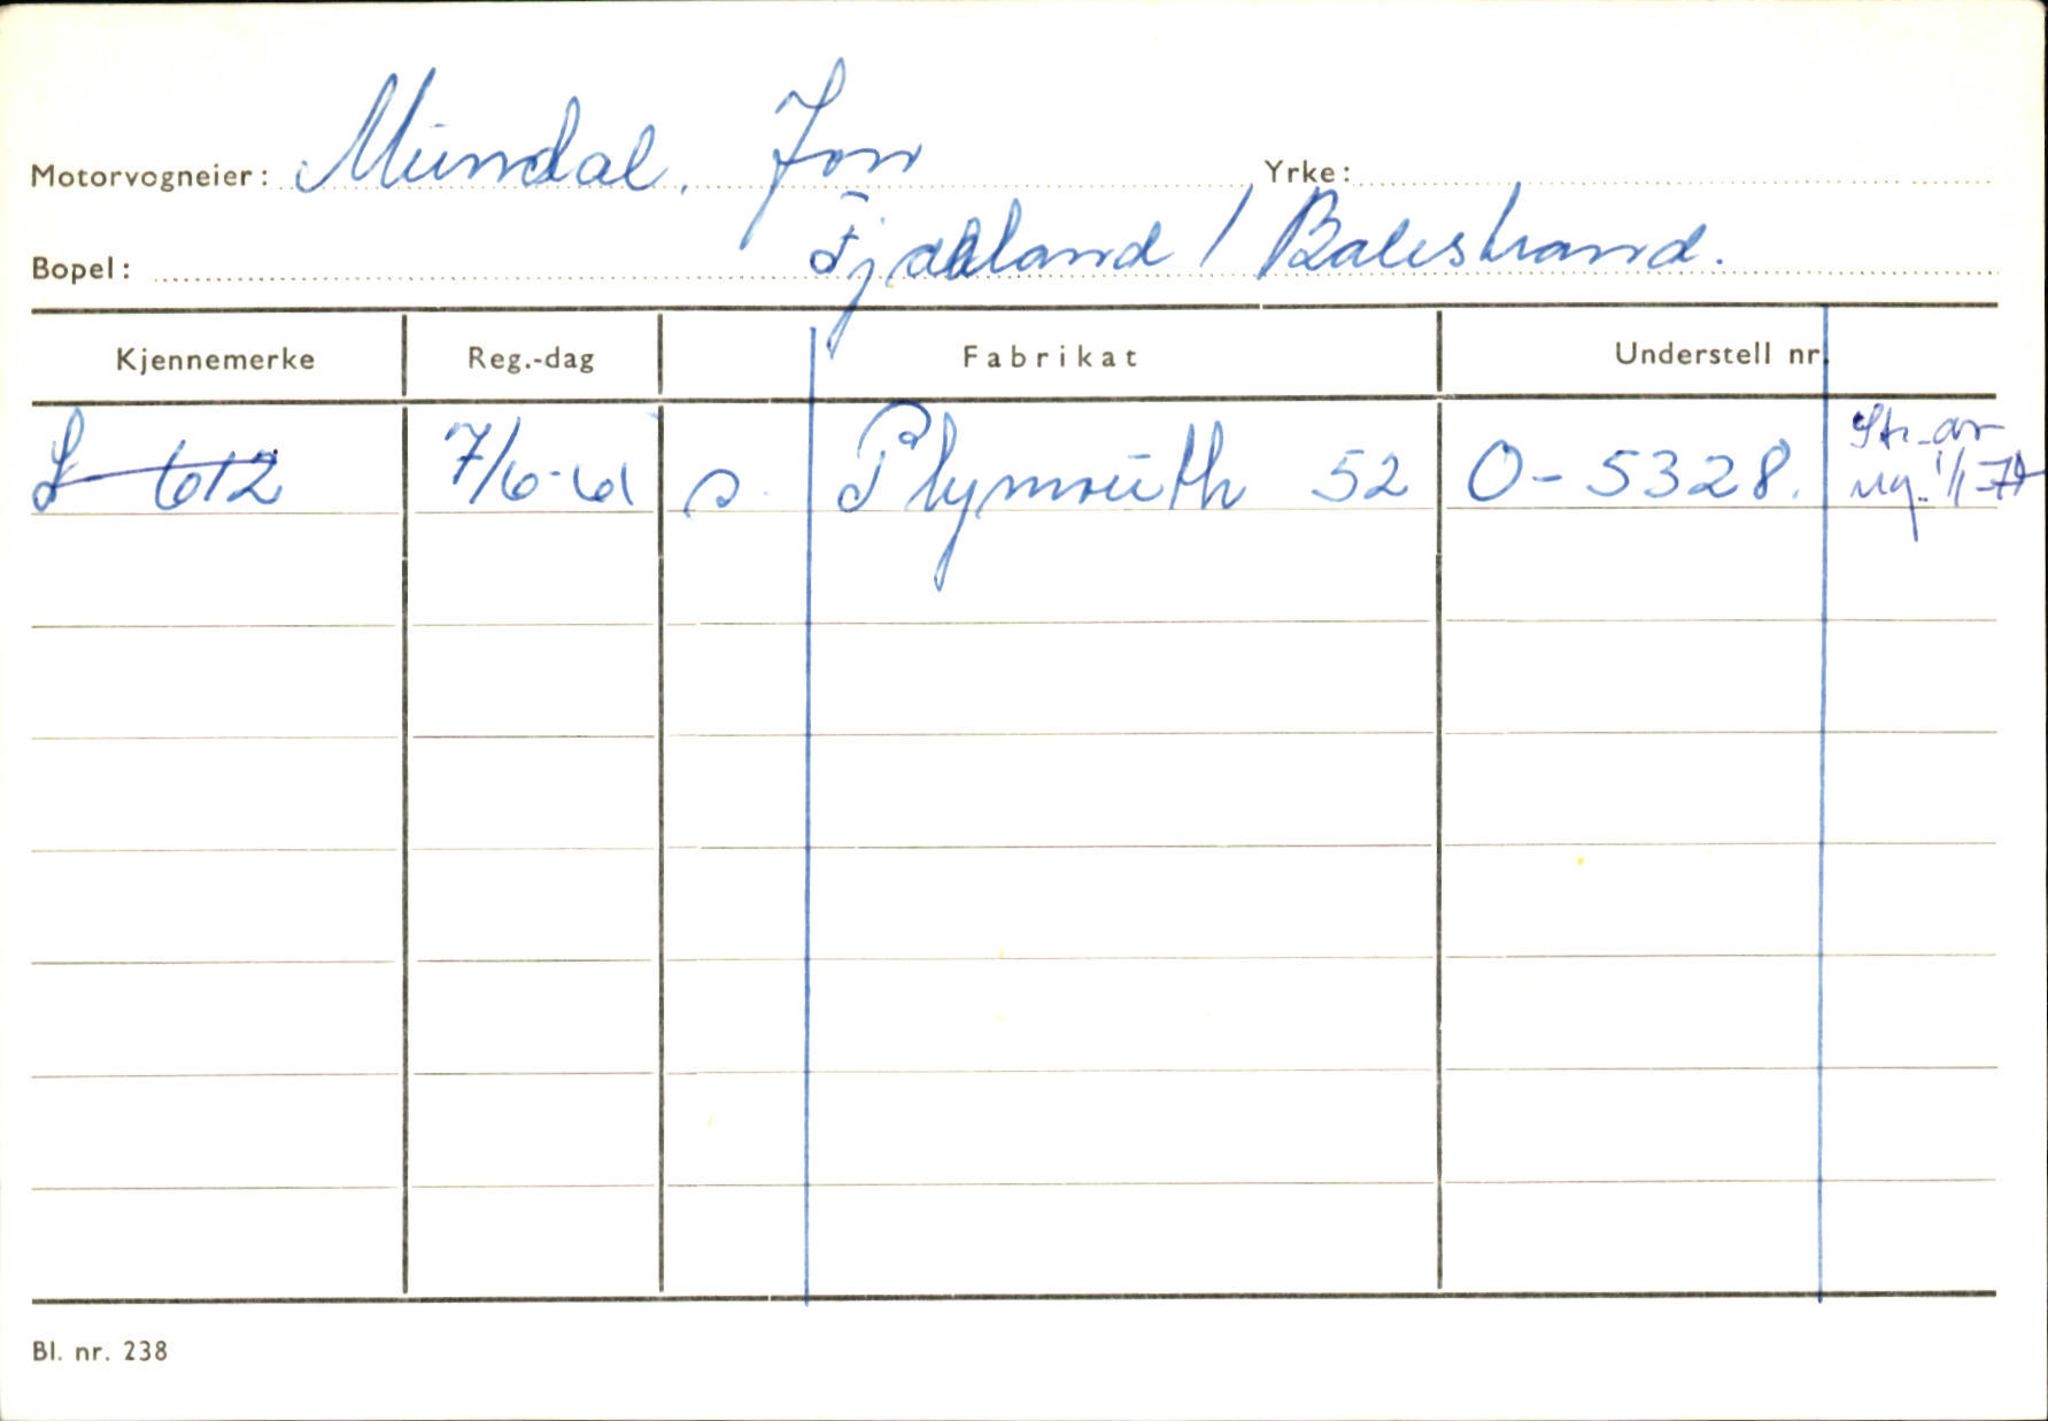 Motorvogneier: Mundal, Jon Yrke:
Bopel: Fjærland / Balestrand.
Kjennemerke Reg.-dag Fabrikat Understell nr.
S 612 7/6-61 P. Plymouth 52 O-5328. Str. av
reg. 1/1-74
Bl. nr. 238